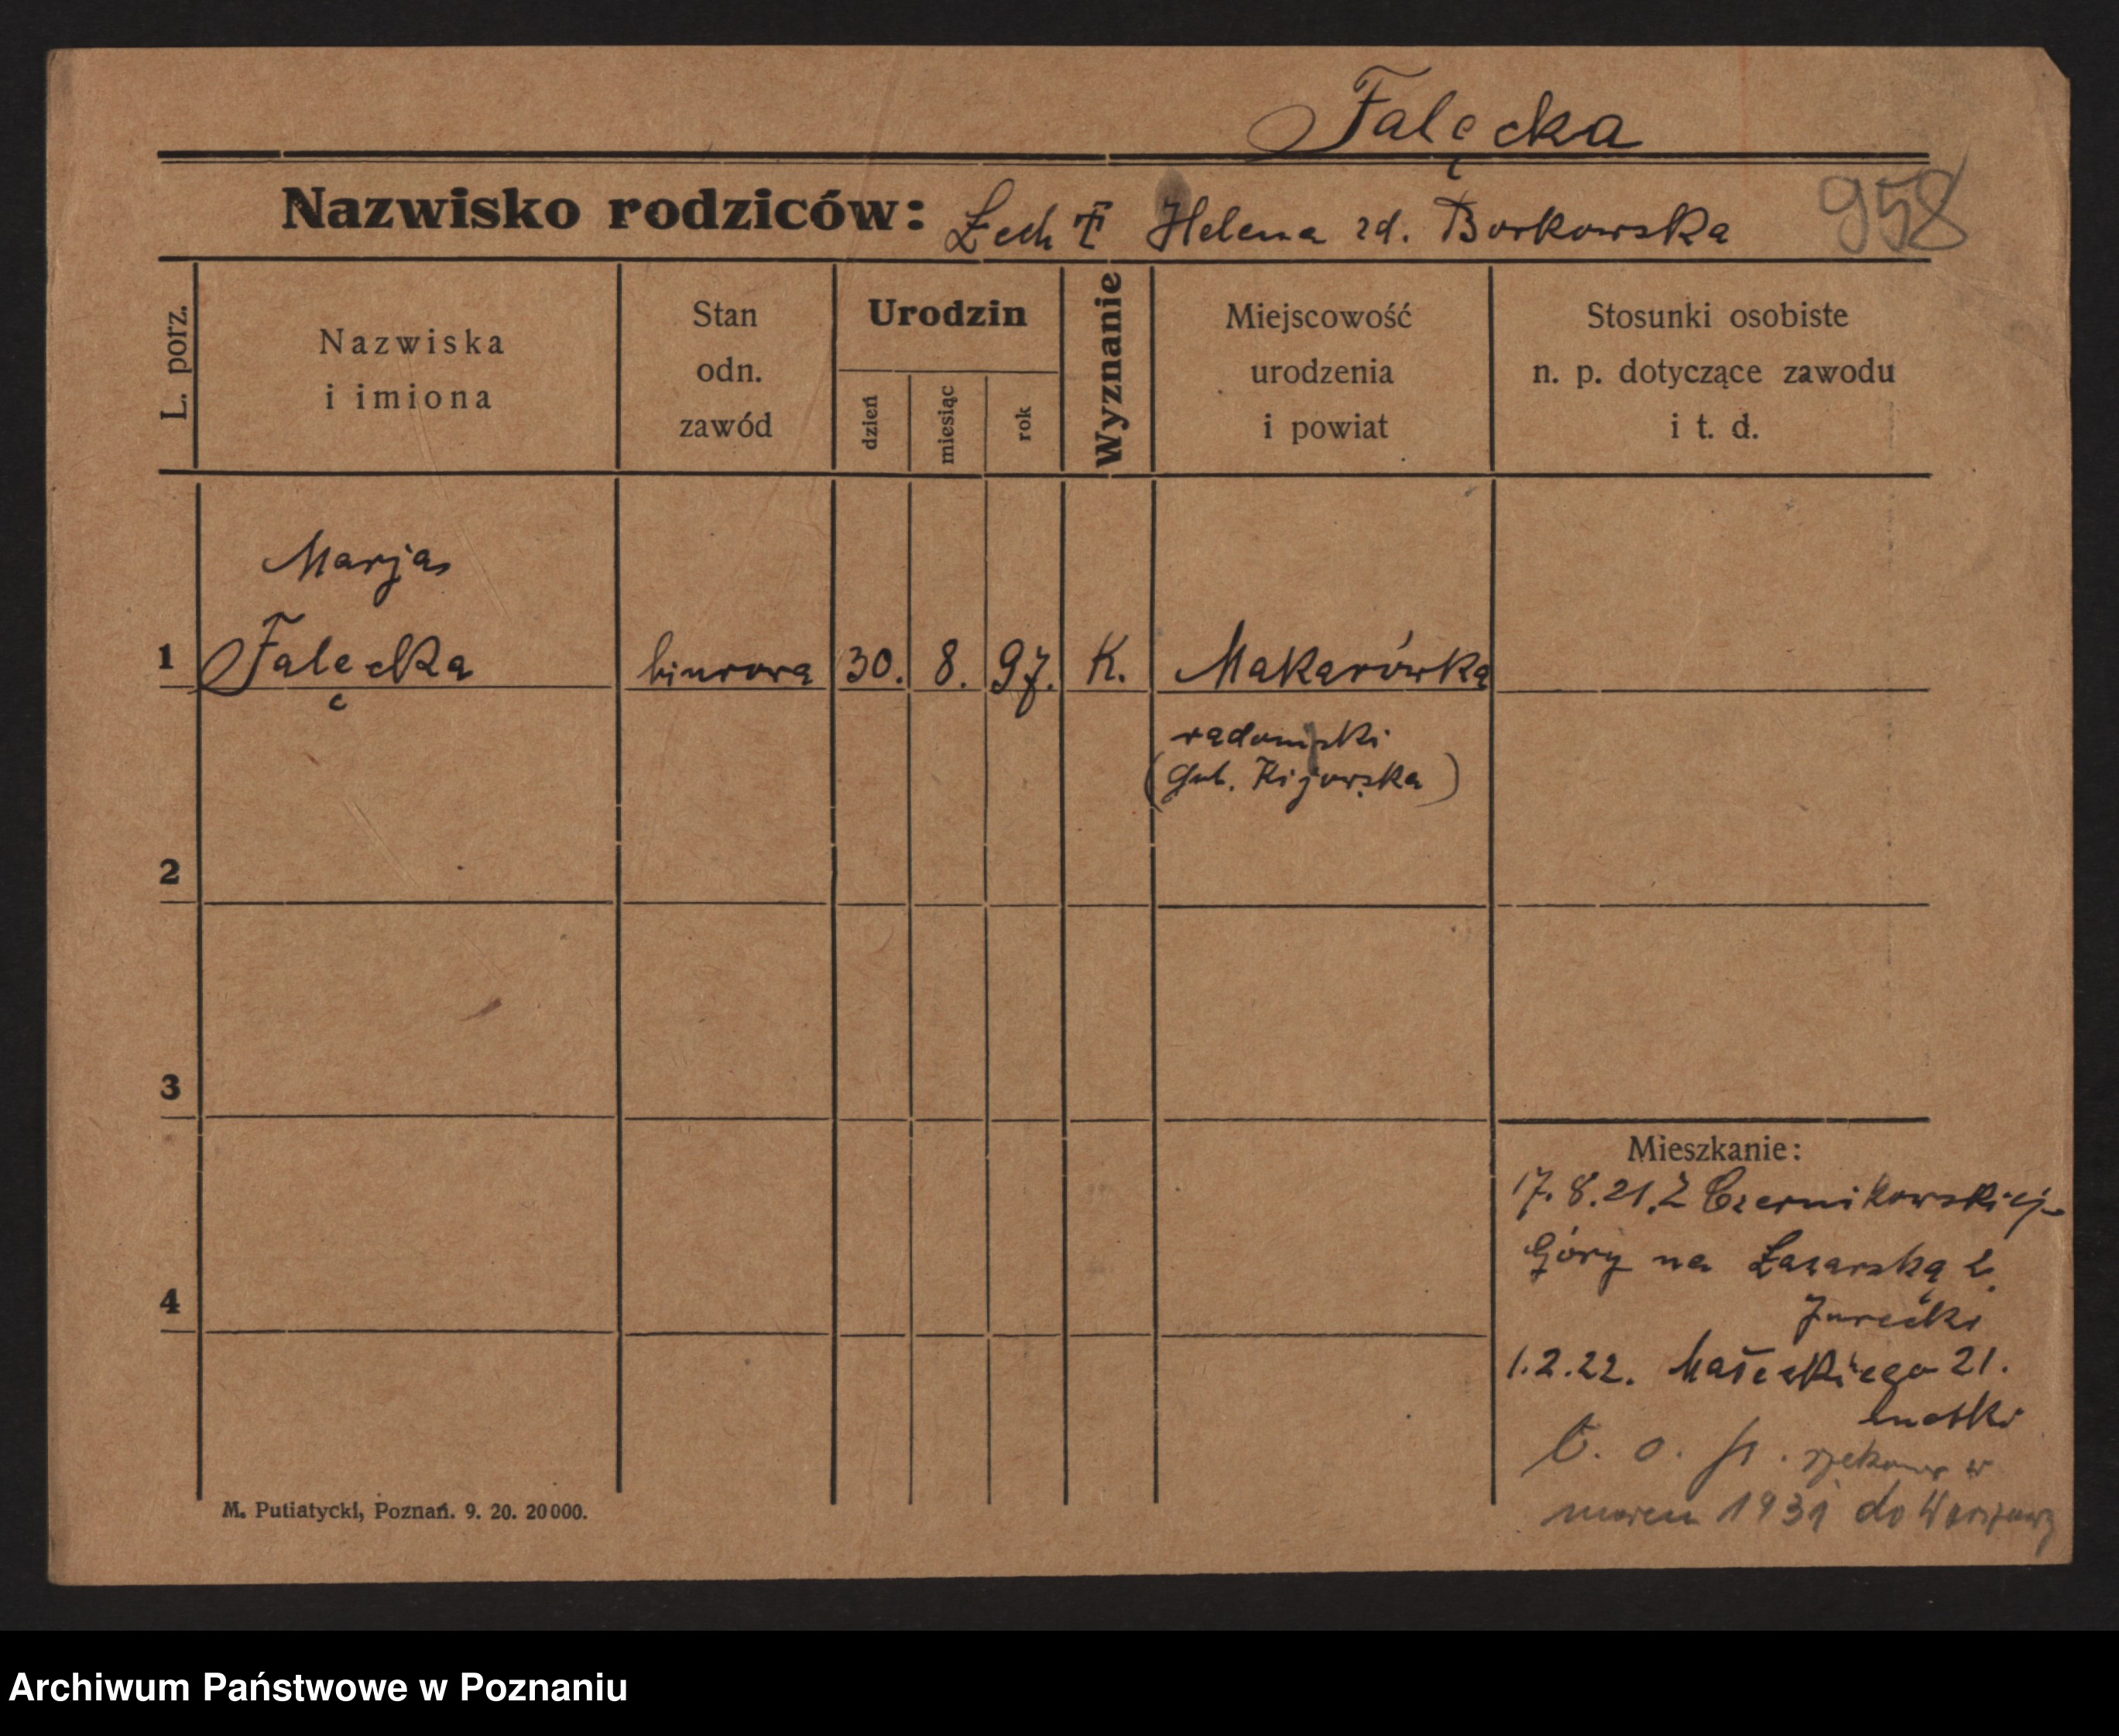 Falęcka
Nazwisko rodziców: Lech F Helena zd. Borkowska 958
L. porz.
Nazwiska
i imiona
Stan
odn.
zawód
Urodzin
dzień
miesiąc
rok
Wyznanie
Miejscowość
urodzenia
i powiat
Stosunki osobiste
n. p. dotyczące zawodu
i t. d.
Marja
1 Falęcka biurowa 30. 8. 97. K. Makarówka
radomski
(Gub. Kijowska)
2
3
4
Mieszkanie:
17.8.21. Z Czernikowskiej
Góry na Łazarską 2
Jurecki
1.2.22. Małeckiego 21.
w
1931 do Warszawy
M. Putiatycki, Poznań. 9. 20. 20000.
Archiwum Państwowe w Poznaniu